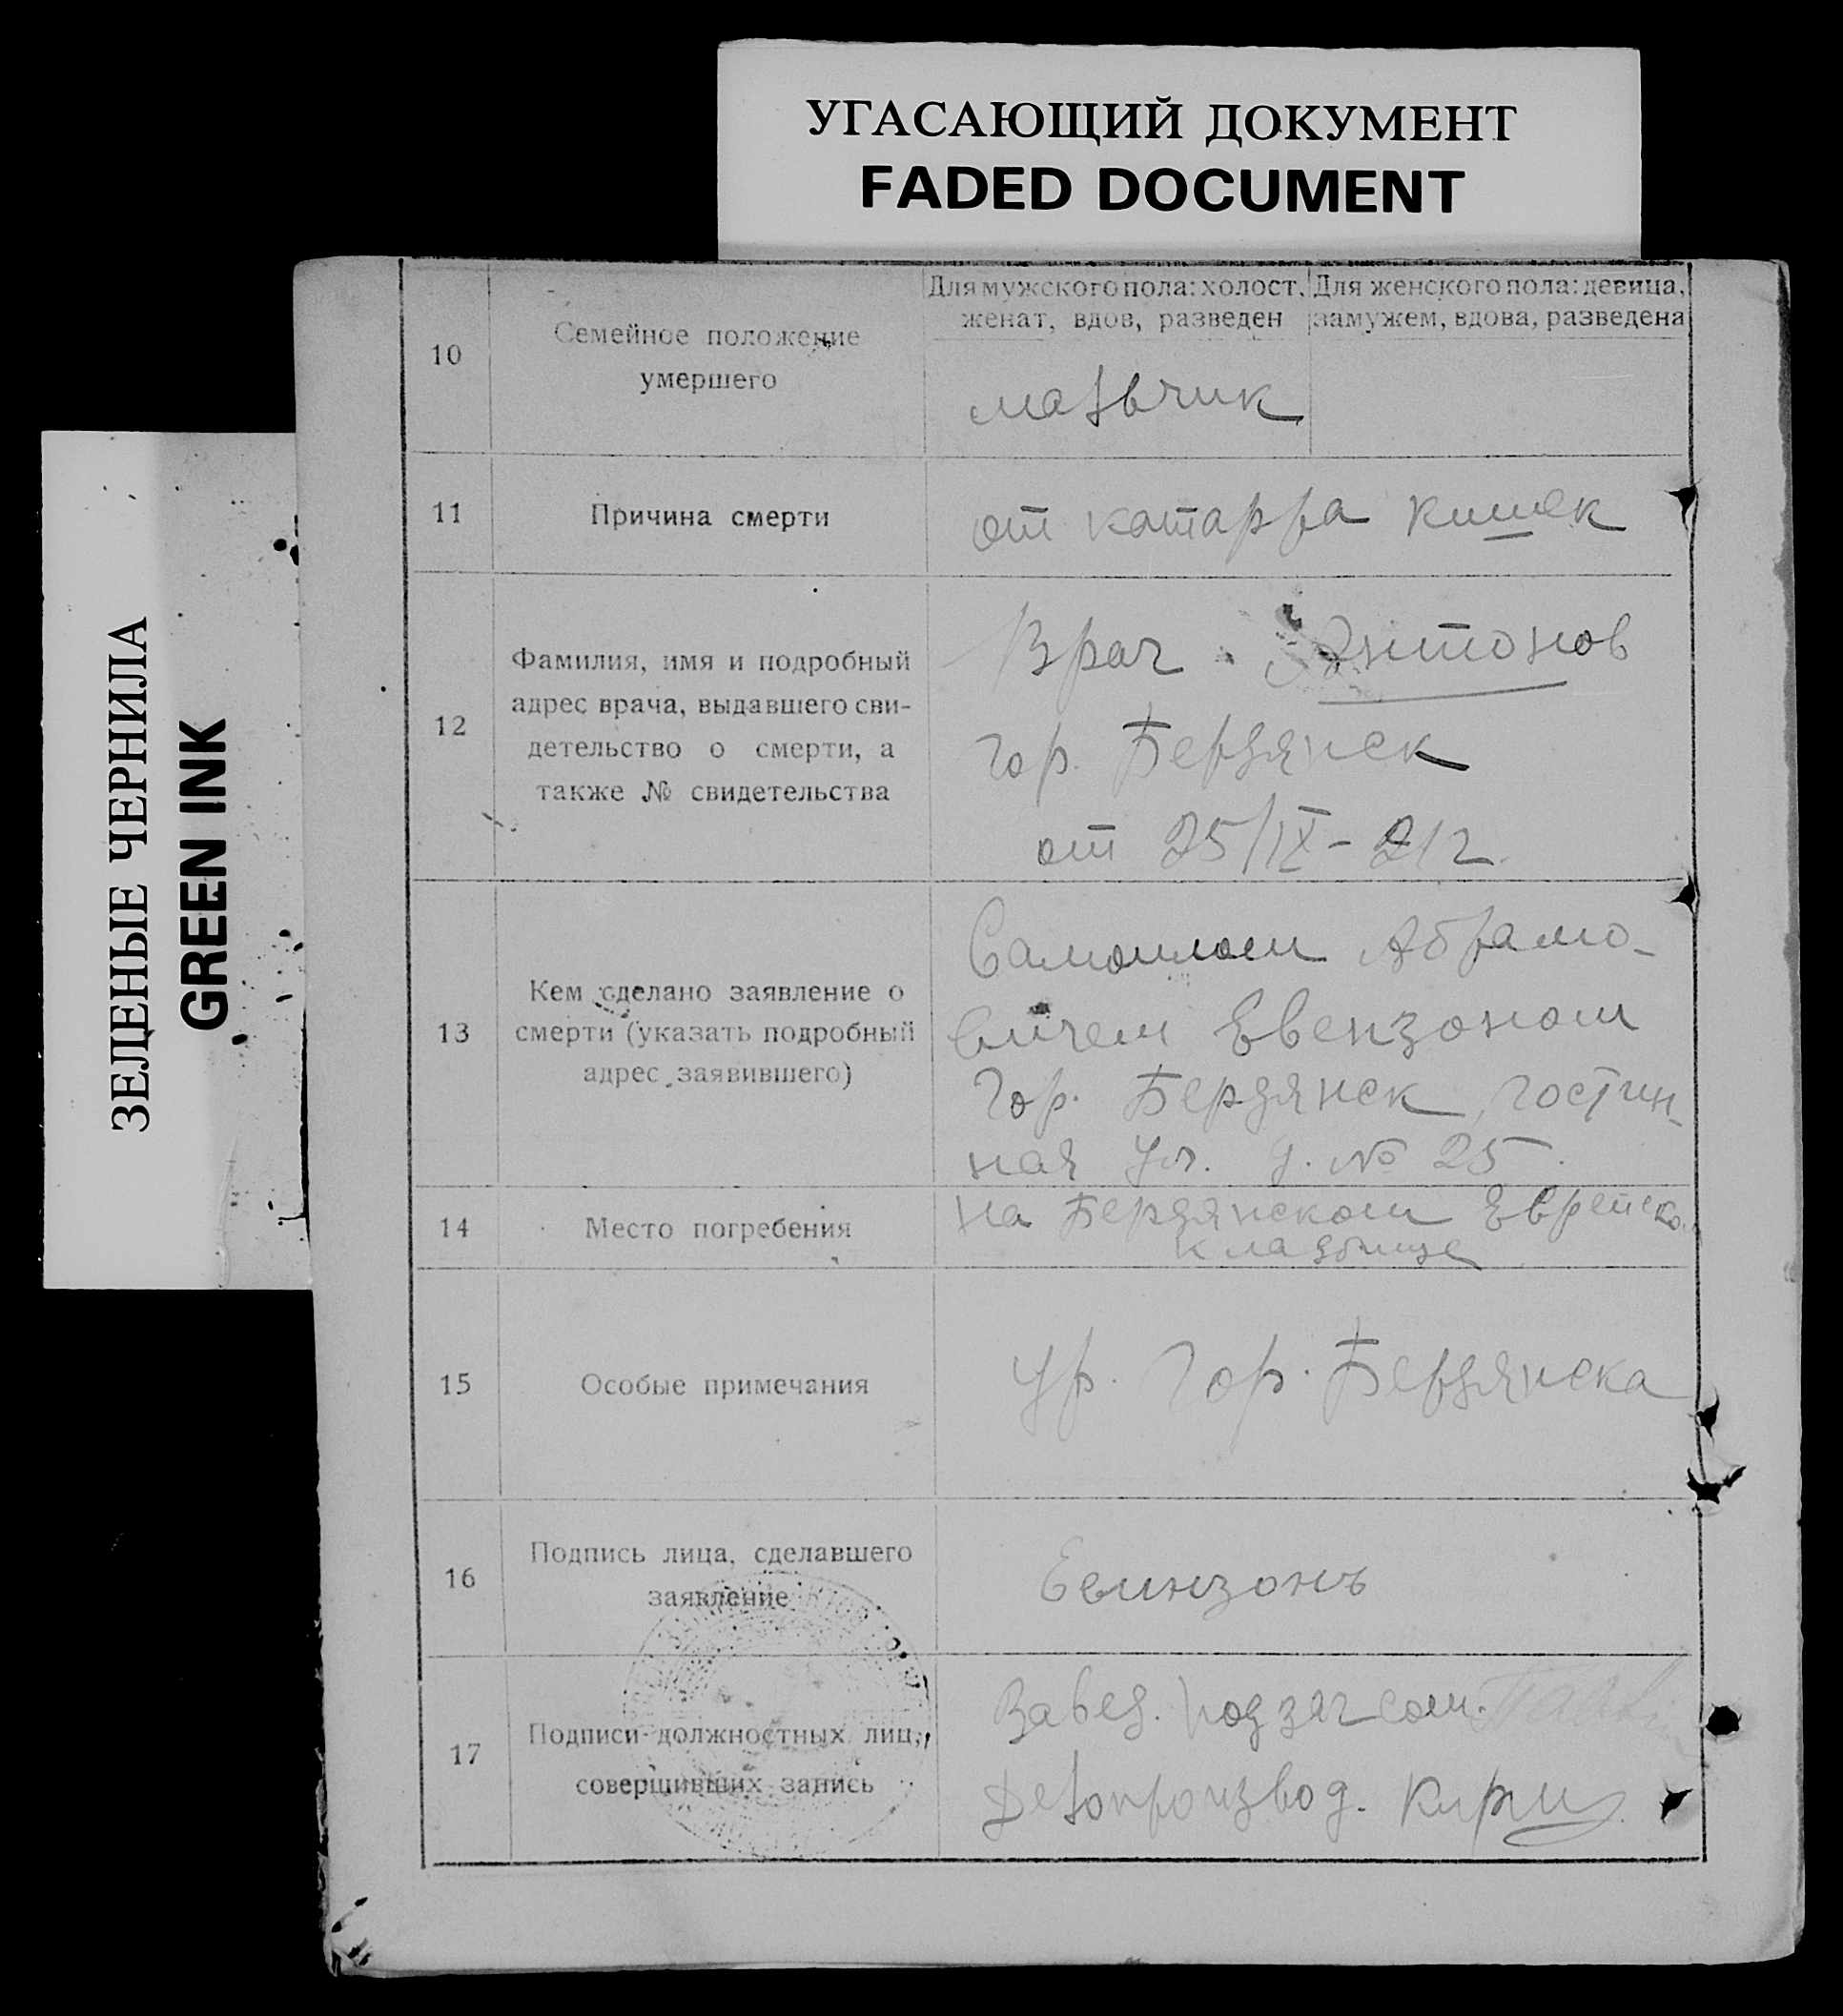 УГАСАЮЩИЙ ДОКУМЕНТ
FADED DOCUMENT
ЗЕЛЕНЫЕ ЧЕРНИЛА
GREEN INK
10
Семейное положение
умершего
Для мужского пола: холост,
женат, вдов, разведен
Для женского пола: девица,
замужем, вдова, разведена
мальчик
11
Причина смерти
от катарра кишек
12
Фамилия, имя и подробный
адрес врача, выдавшего сви-
детельство о смерти, а
также № свидетельства
Врач Антонов
гор. Бердянск
от 25/IX-21 г.
13
Кем сделано заявление о
смерти (указать подробный
адрес заявившего)
Самоилом Абрамо-
вичем Евензоном
Гор. Бердянск, гостин-
ная ул. д. № 25.
14
Место погребения
на Бердянском Еврейско.
кладбище
15
Особые примечания
Ур. Гор. Бердянска
16
Подпись лица, сделавшего
заявление
Евинзонъ
17
Подписи должностных лиц,
совершивших запись
Завед. подзагсом.
Делопроизвод.